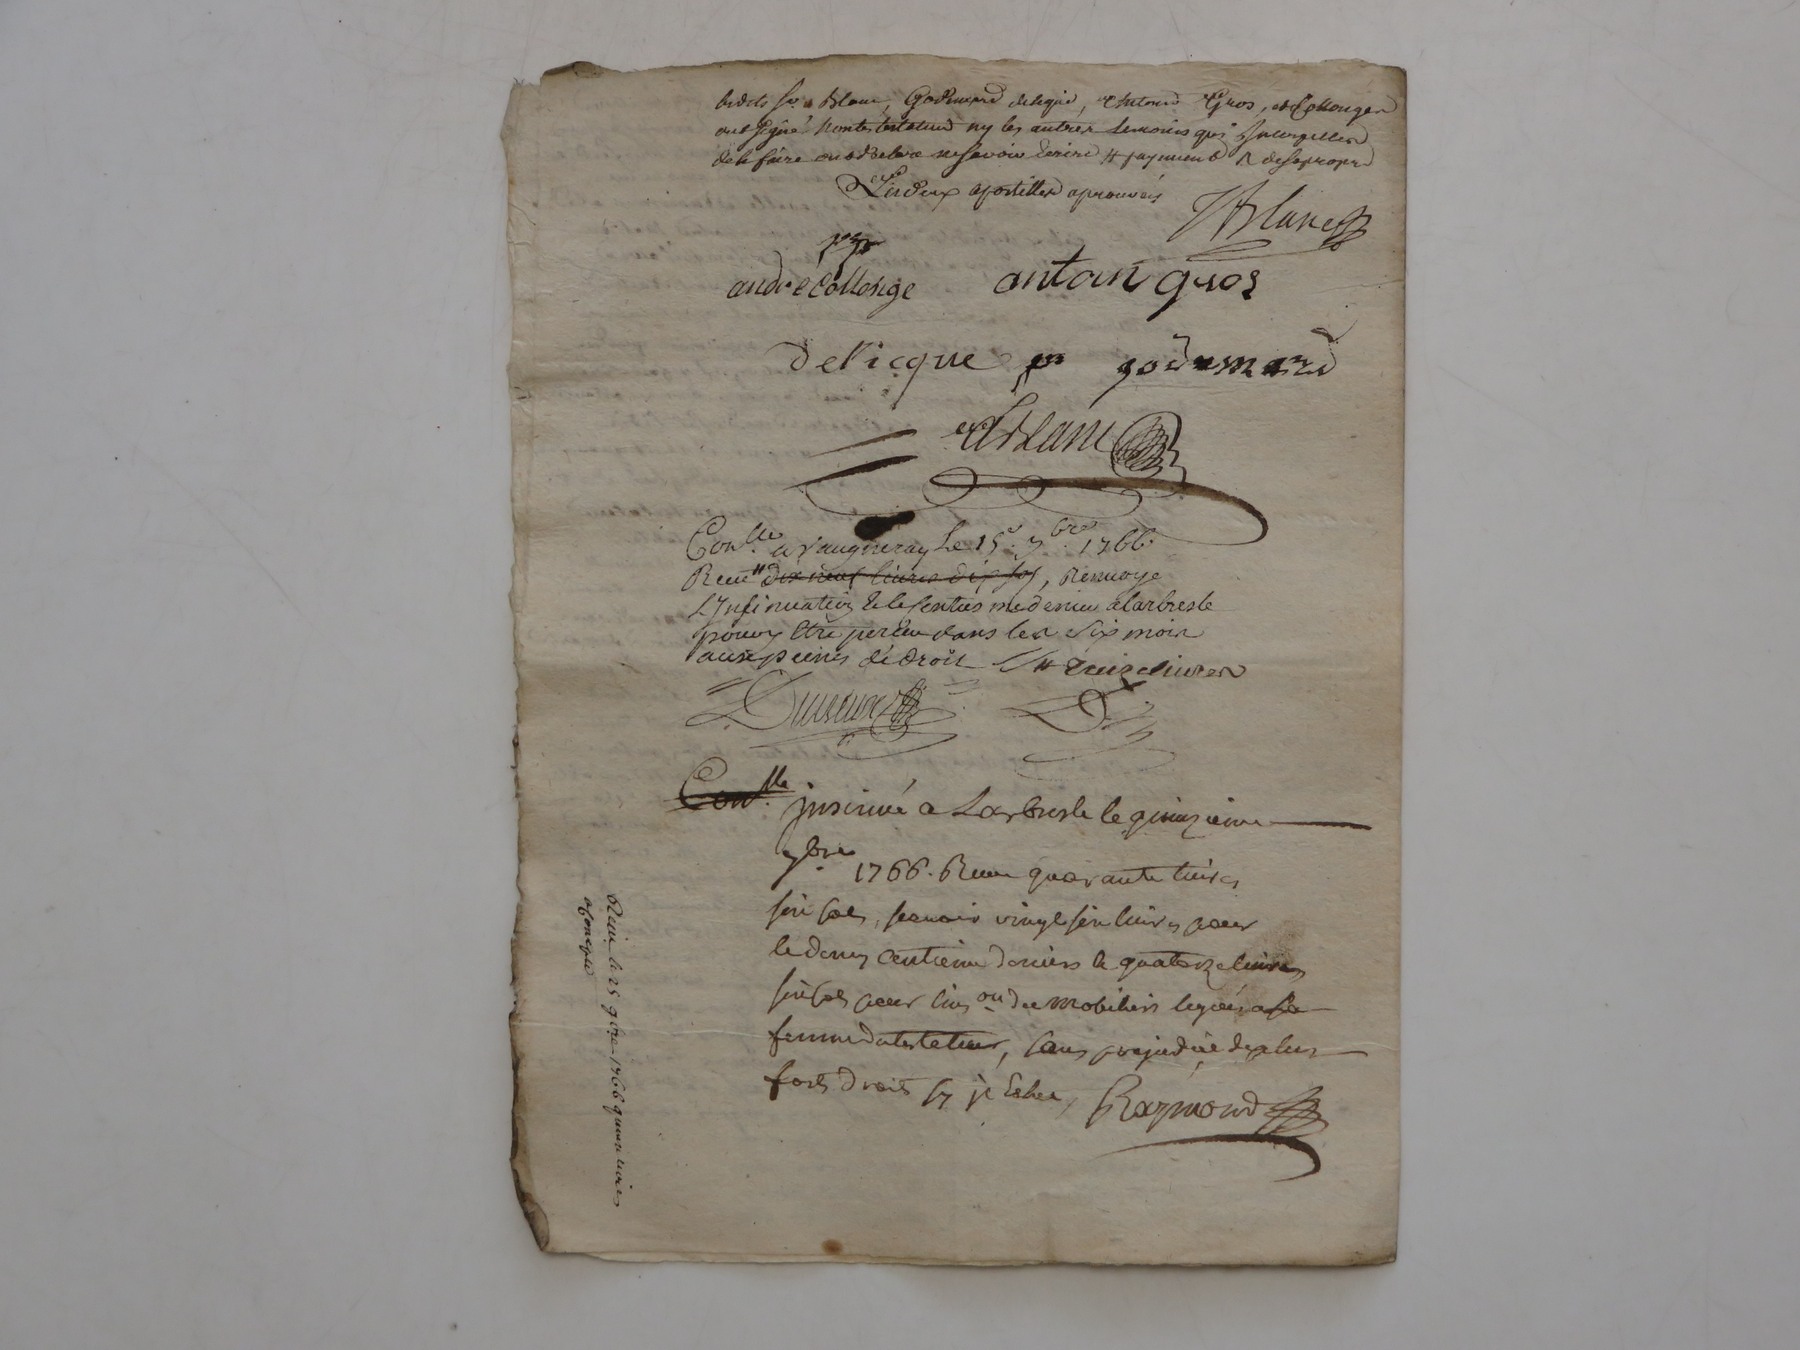 lesdits sr Blanc, Godemard delique, Antoine Gros, et Collonges
ont signé non le testateur ny les autres temoins qui
de le faire ont declaré ne scavoir ecrire # payement
Les deux apostilles aprouvés
JBlanc
andré Collonge antoin gros
delicque godemard
Blanc
Conlle a vaugneray le 15e 7bre 1766.
Recu dix neuf livres dix sols, Renvoyé
L'Insinuation & le Centieme denier a larbresle
pour y Etre perceu dans les six mois
aux peines de droit # treize livres
Conlle
insinué a Larbresle le quinzieme
7bre 1766. Recu quarante livres
six sols, scavoir vingt six livres pour
le demy centieme denier & quatorze livres
six sols pour l'inson du mobilier legué a sa
femme du testateur, sans prejudice de plus
forts droits sy il echet, Raymond
Recu le 25 9bre 1766